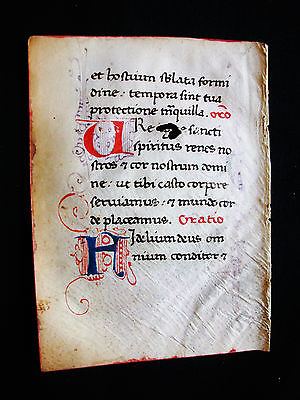 et hostium sblata formi
dine: tempora sint tua
protectione tranquilla. oro
URe sancti
spiritus renes nos
tros & cor nostrum domi
ne: ut tibi casto corpore
serviamus: & mundo cor
de placeamus. Oratio
Fidelium deus om
nium conditer &